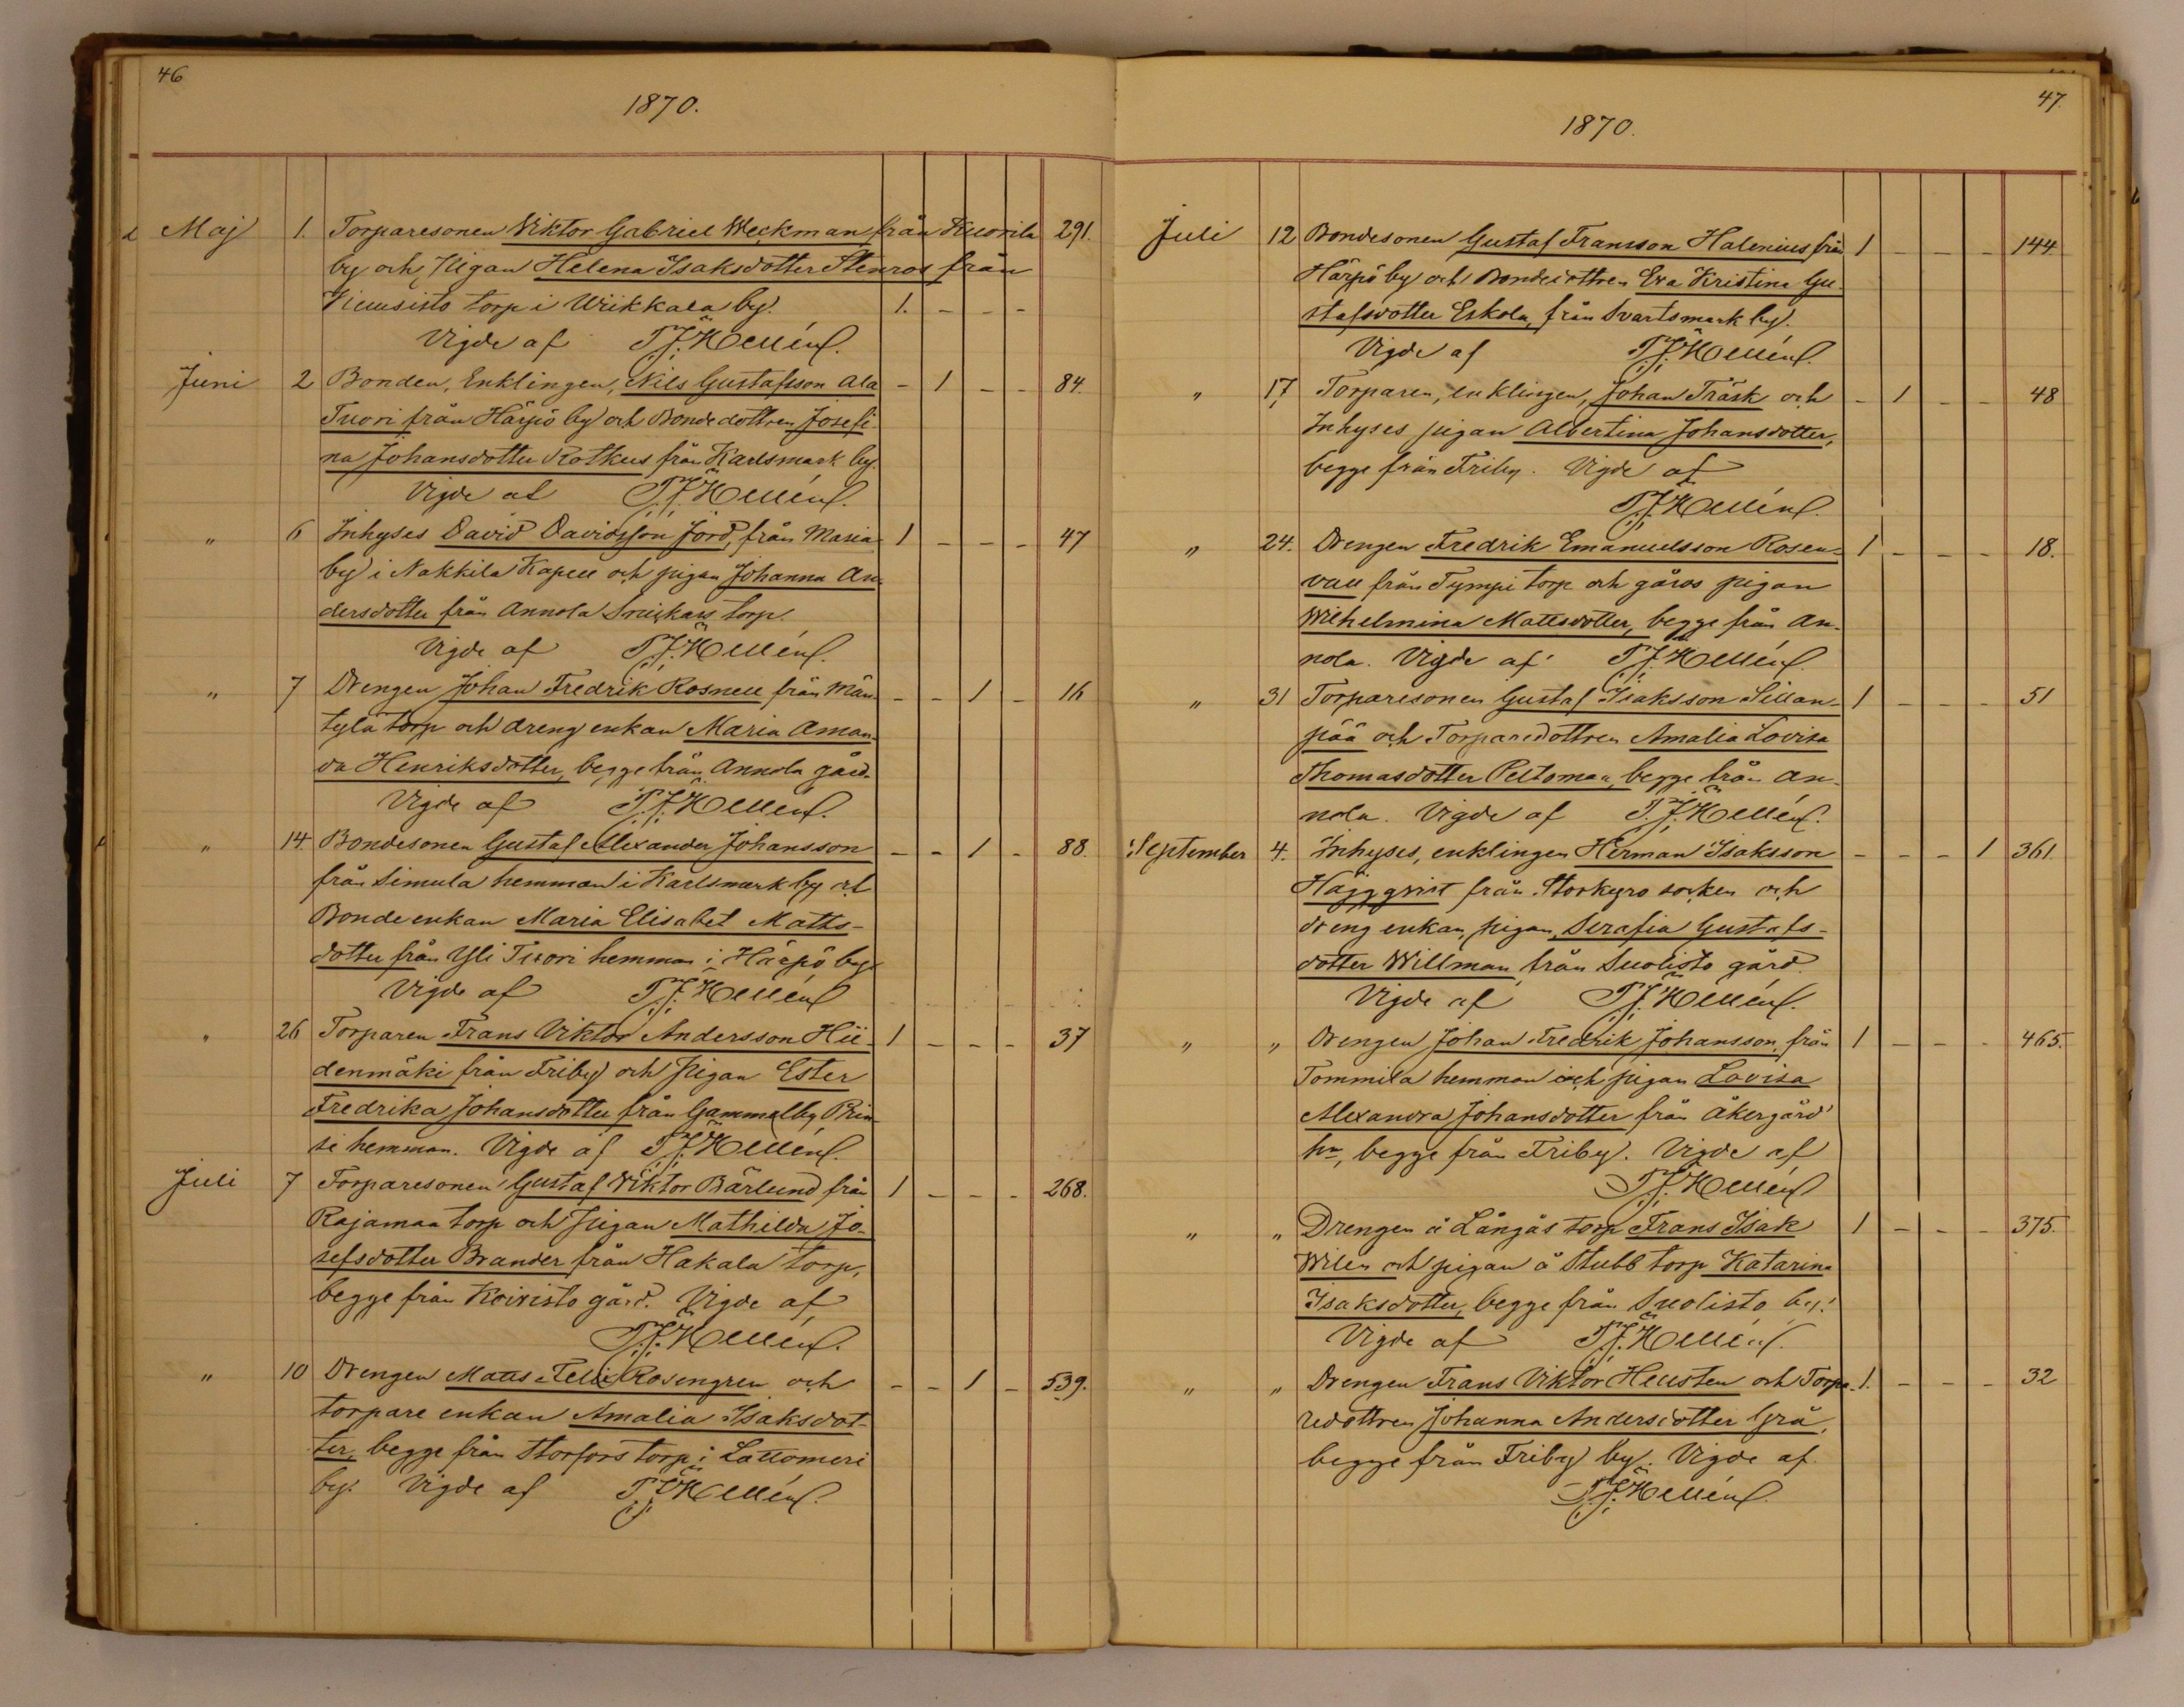 46
1870.
Maj 1. Torparesonen Wiktor Gabriel Weckman från Kuorila 291.
by och Pigan Helena Isaksdotter Stenros från
torp i Wiikkala by. 1. - - -
Vigde af T. J. Hellén.
Juni 2 Bonden, Enklingen, Nils Gustafsson Ala - 1 - - 84.
Tuori från Härpö by och Bondedottren Josefi-
na Johansdotter Rotkus från Karlsmark by.
Vigde af T. J. Hellén.
" 6 Inhyses David Davidsson Jord, från Maria 1 - - - 47
by i Nakkila Kapell och pigan Johanna An-
dersdotter från Annola Snickars torp.
Vigde af T. J. Hellén.
" 7 Drengen Johan Fredrik Rosnell från Män- - - 1 - 16
tylä torp och dreng enkan Maria Aman-
da Henriksdotter, begge från Annola gård.
Vigde af T. J. Hellén.
" 14. Bondesonen Gustaf Alexander Johansson - - 1 - 88.
från Simula hemman i Karlsmark by och
Bonde enkan Maria Elisabet Matts-
dotter från Yli Tuori hemman i Härpö by.
Vigde af T. J. Hellén
" 26 Torparen Frans Viktor Andersson Hii- 1 - - - 37
denmäki från Friby och Pigan Ester
Fredrika Johansdotter från Gammelby, Prin-
si hemman. Vigde af T. J. Hellén.
Juli 7 Torparesonen Gustaf Wiktor Bärlund från 1 - - - 268.
Rajamaa torp och Pigan Mathilda Jo-
sefsdotter Brander från Hakala torp,
begge från Koivisto gård. Vigde af
T. J. Hellén.
" 10 Drengen Matts Felix Rosengren och - - 1 - 539.
torpare enkan Amalia Isaksdot-
ter, begge från Storfors torp i Lattomeri
by. Vigde af T. J. Hellén.
47.
1870.
Juli 12 Bondesonen Gustaf Fransson Halenius från 1 - - - 144.
Härpö by och Bondedottren Eva Kristina Gu-
stafsdotter Eskola, från Svartsmark by.
Vigde af T. J. Hellén.
" 17, Torparen, enklingen, Johan Träsk och - 1 - - 48
Inhyses pigan Albertina Johansdotter,
begge från Friby. Vigde af
T. J. Hellén.
" 24. Drengen Fredrik Emanuelsson Rosen- 1 - - - 18.
vall från Tympi torp och gårds pigan
Wilhelmina Mattsdotter, begge från An-
nola. Vigde af T. J. Hellén.
" 31 Torparesonen Gustaf Isaksson Sillan- 1 - - - 51
pää och Torparedottren Amalia Lovisa
Thomasdotter Peltomaa, begge från An-
nola. Vigde af T. J. Hellén.
September 4. Inhyses, enklingen Herman Isaksson - - - 1 361.
Häggqvist från Storkyro socken och
dreng enkan, pigan, Serafia Gustafs-
dotter Willman, från Suolisto gård.
Vigde af T. J. Hellén.
" " Drengen Johan Fredrik Johansson, från 1 - - - 465.
Tommila hemman och pigan Lovisa
Alexandra Johansdotter från Åkergård
hn, begge från Friby. Vigde af
T. J. Hellén
" " Drengen å Långås torp Frans Isak 1 - - - 375.
Wilen och pigan å Stubb torp Katarina
Isaksdotter, begge från Suolisto by.
Vigde af T. J. Hellén.
" " Drengen Frans Viktor Hellsten och Torpa- 1. - - - 32
redottren Johanna Andersdotter Grå,
begge från Friby by. Vigde af
T. J. Hellén.